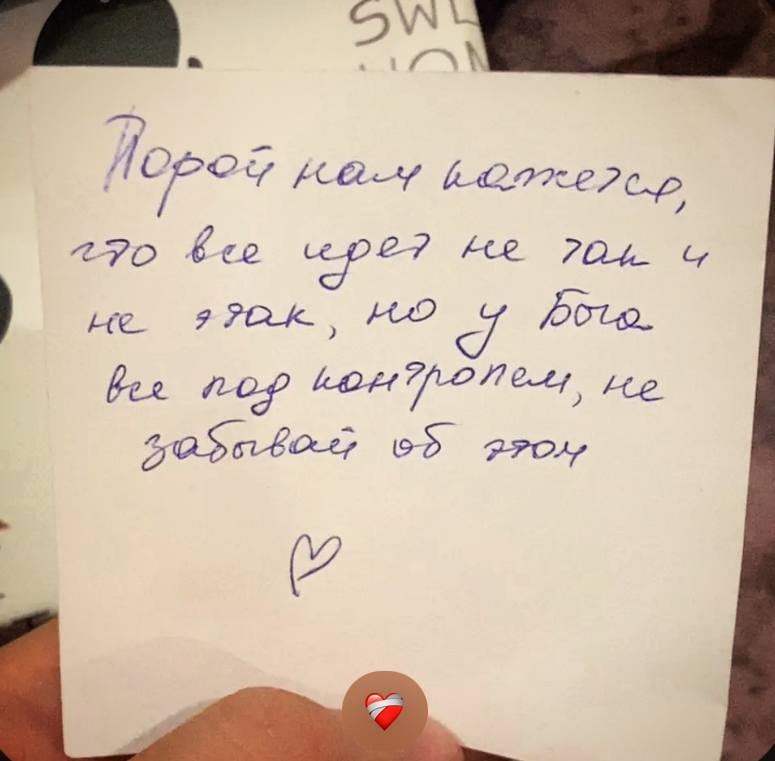 SWL
HOM
Порой нам кажется,
что все идет не так и
не этак, но у Бога
все под контролем, не
забывай об этом